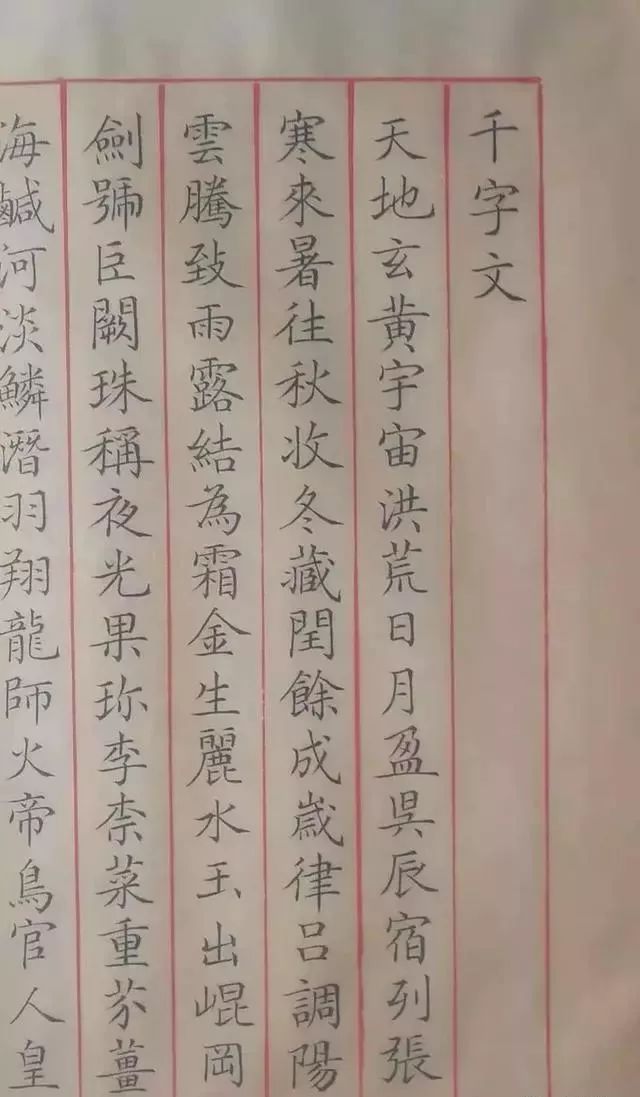 千字文
天地玄黄宇宙洪荒日月盈昗辰宿列張
寒來暑往秋收冬藏閏餘成歲律吕調陽
雲騰致雨露結為霜金生麗水玉出崐岡
劍號巨闕珠稱夜光果珎李柰菜重芥薑
海鹹河淡鱗潛羽翔龍師火帝鳥官人皇